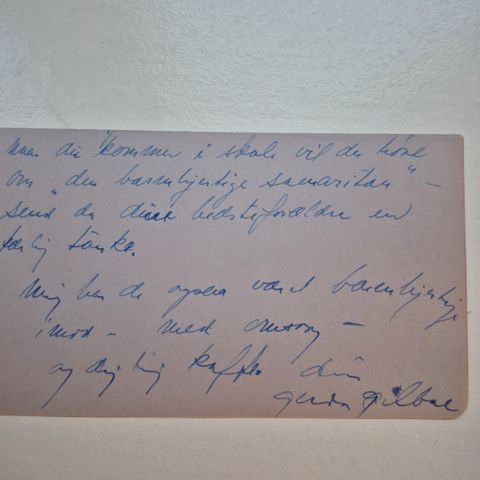 naar du kommer i skole vil du höre
om "den barmhjertige samaritan" -
send da dine bedsteforældre en
kærlig tanke.
Mig har de ogsaa været barmhjertige
imod - med omsorg -
og dejlig kaffe. din
Gerda Gilboe